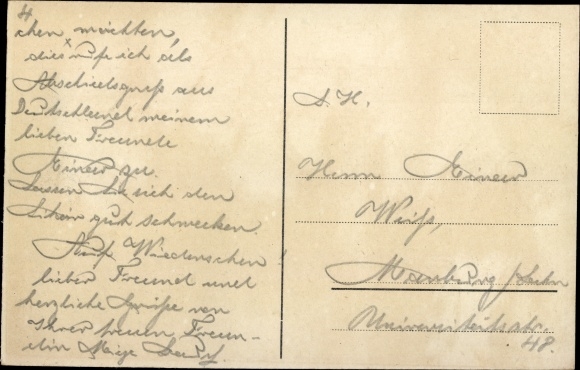 4
chen möchten,
dies rufe ich als
Abschiedsgruß aus
Deutschland meinem
lieben Freunde
zu.
Lassen Sie sich den
gut schmecken.
Auf Wiedersehen!
lieber Freund und
herzliche Grüße von
Ihrer treuen Freun-
din
S. H.
Herrn
Weiß,
Marburg / Lahn
Universitätsstr.
48.